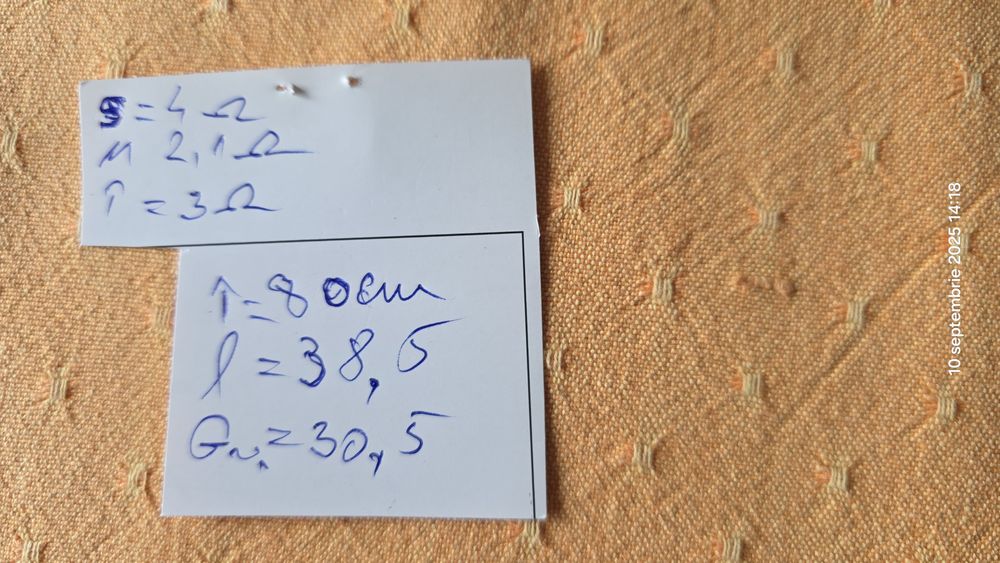 S = 4 Ω
M 2,1 Ω
T = 3 Ω
↑ = 80cm
l = 38,5
Gr. = 30,5
10 septembrie 2025 14:18